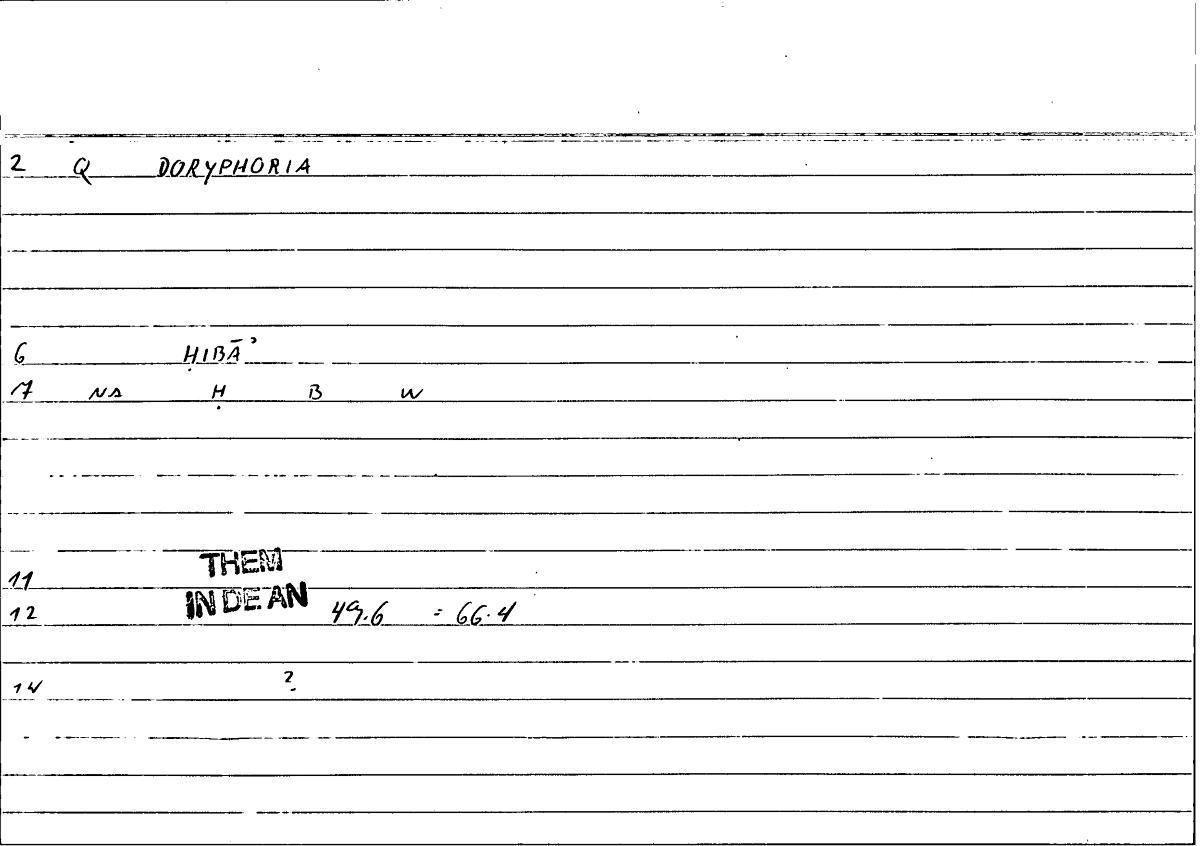 2 Q DORYPHORIA
6 ḤIBĀʾ
7 NA Ḥ B W
THEM
11
IN DE AN
12 49.6 = 66.4
14 ?